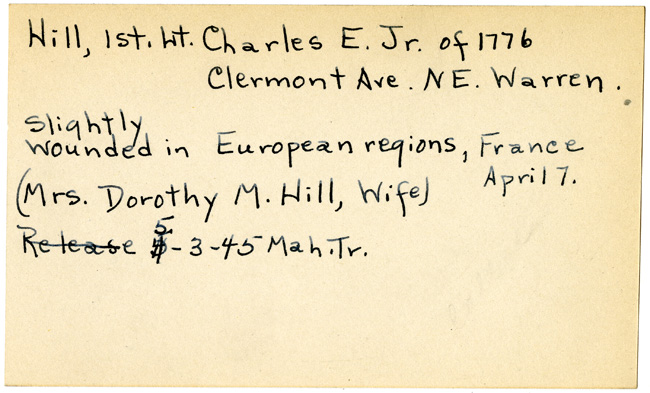 Hill, 1st. Lt. Charles E. Jr. of 1776
Clermont Ave. NE. Warren.
slightly
wounded in European regions, France
April 7.
(Mrs. Dorothy M. Hill, Wife)
Release 5-3-45 Mah. Tr.